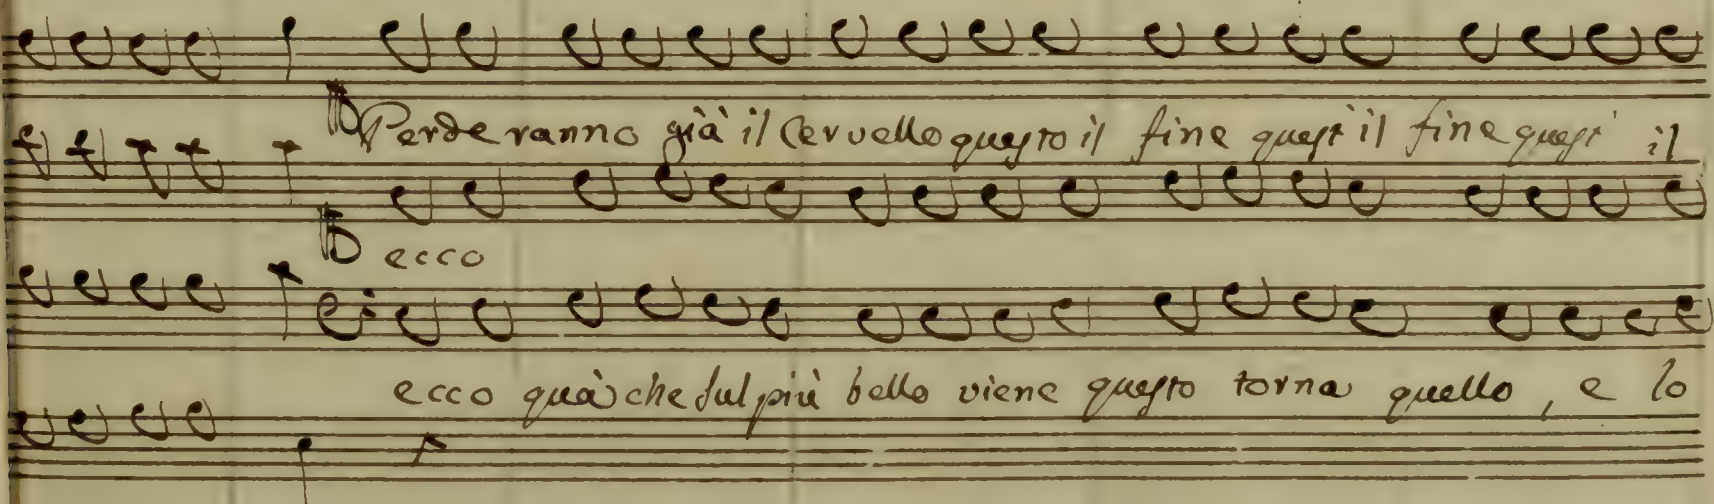 Perderanno già il Cervello questo il fine quest'il fine quest' il
ecco
ecco quà che sul più bello viene questo torna quello, e lo